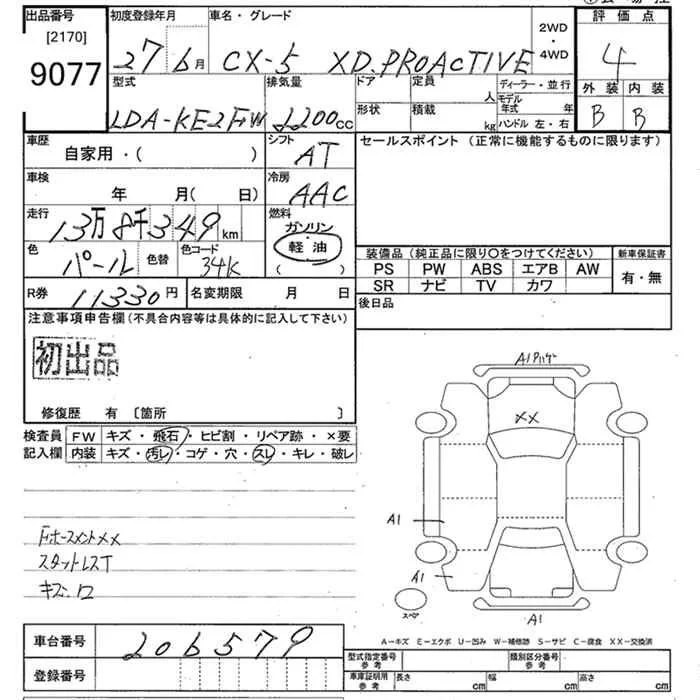 出品番号 初度登録年月 車名・グレード 2WD・4WD 評価点
[2170]
9077
27 6月 CX-5 XD.PROACTIVE 4
型式 排気量 ドア 定員 人 ディーラー・並行 外装 内装
LDA-KE2FW 2200cc 形状 積載 kg モデル年式 年 ハンドル 左・右 B B
車歴 シフト セールスポイント (正常に機能するものに限ります)
自家用・( ) AT
車検 冷房
年 月( 日) AAC
走行 燃料
13万8千349km ガソリン
色 色替 色コード 軽油
パール 34K ( )
装備品(純正品に限り○をつけてください) 新車保証書
PS PW ABS エアB AW 有・無
SR ナビ TV カワ
R券 11330円 名変期限 月 日 後日品
注意事項申告欄(不具合内容等は具体的に記入して下さい)
初出品
修復歴 有 〔箇所 〕
検査員 FW キズ・飛石・ヒビ割・リペア跡・×要
記入欄 内装 キズ・汚レ・コゲ・穴・スレ・キレ・破レ
XX
A1
A1
A1
スペア
スタットレスT
キズ・凹
A-キズ E-エクボ U-凹み W-補修跡 S-サビ C-腐食 XX-交換済
車台番号 206579
登録番号
型式指定番号 参考 類別区分番号 参考
車庫証明用 参考 長さ cm 幅 cm 高さ cm